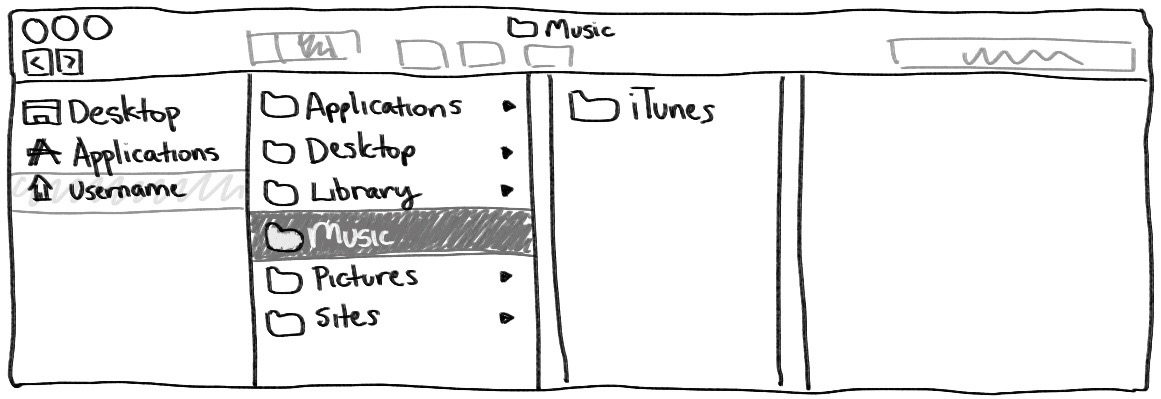 Music
< >
Desktop
Applications
Username
Applications
Desktop
Library
Music
Pictures
Sites
iTunes